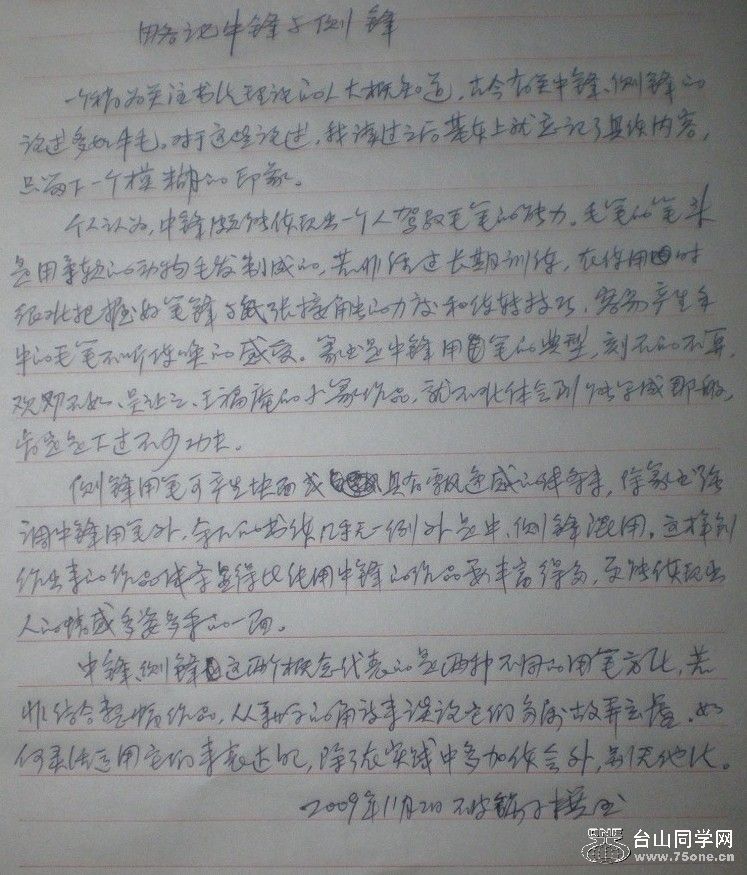 略论中锋与侧锋
一个稍为关注书法理论的人大概知道，古今有关中锋、侧锋的
论述多如牛毛。对于这些论述，我读过之后基本上就忘记了具体内容，
只留下一个模糊的印象。
个人认为，中锋颇能体现出一个人驾驭毛笔的能力。毛笔的笔头
是用柔软的动物毛发制成的，若非经过长期训练，在作用时
很难把握好笔锋与纸张接触的力度和使转技巧，容易产生手
中的毛笔不听使唤的感受。篆书是中锋用笔的典型，别的不算，
邓如、吴让之、王福庵的小篆作品，就不难体会到
肯定是下过不少功夫。
侧锋用笔可产生块面或具有飘逸感的线条来，除篆书强
调中锋用笔外，余下的书体几乎无一例外是中、侧锋混用。这样创
作出来的作品线条显得比纯用中锋的作品要丰富得多，更能体现出
人的情感多姿多采的一面。
中锋侧锋这两个概念代表的是两种不同的用笔方法，若
非结合整幅作品，从美好的角度来谈论它们多属故弄玄虚。如
何灵活运用它们来表达自己，除了在实践中多加体会外，别无他法。
2009年11月2日
台山同学网
www.75one.cn